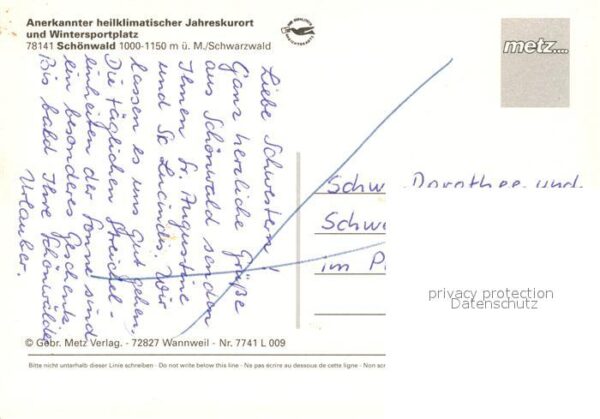 Anerkannter heilklimatischer Jahreskurort
und Wintersportplatz
78141 Schönwald 1000-1150 m ü. M./Schwarzwald
metz....
Liebe Schwestern!
Ganz herzliche Grüße
aus Schönwald senden
Ihnen Sr. Augustine
und Sr. Lucindis. Wir
lassen es uns gut gehen.
Die täglichen Streichel-
einheiten der Sonne sind
ein besonderes Geschenk.
Bis bald Ihre Schönwälder
Urlauber.
Schw. Dorothee und
Schw
im P
privacy protection
Datenschutz
© Gebr. Metz Verlag. - 72827 Wannweil - Nr. 7741 L 009
Bitte nicht unterhalb dieser Linie schreiben - Do not write below this line - Ne pas écrire au dessous de cette ligne - Non scri